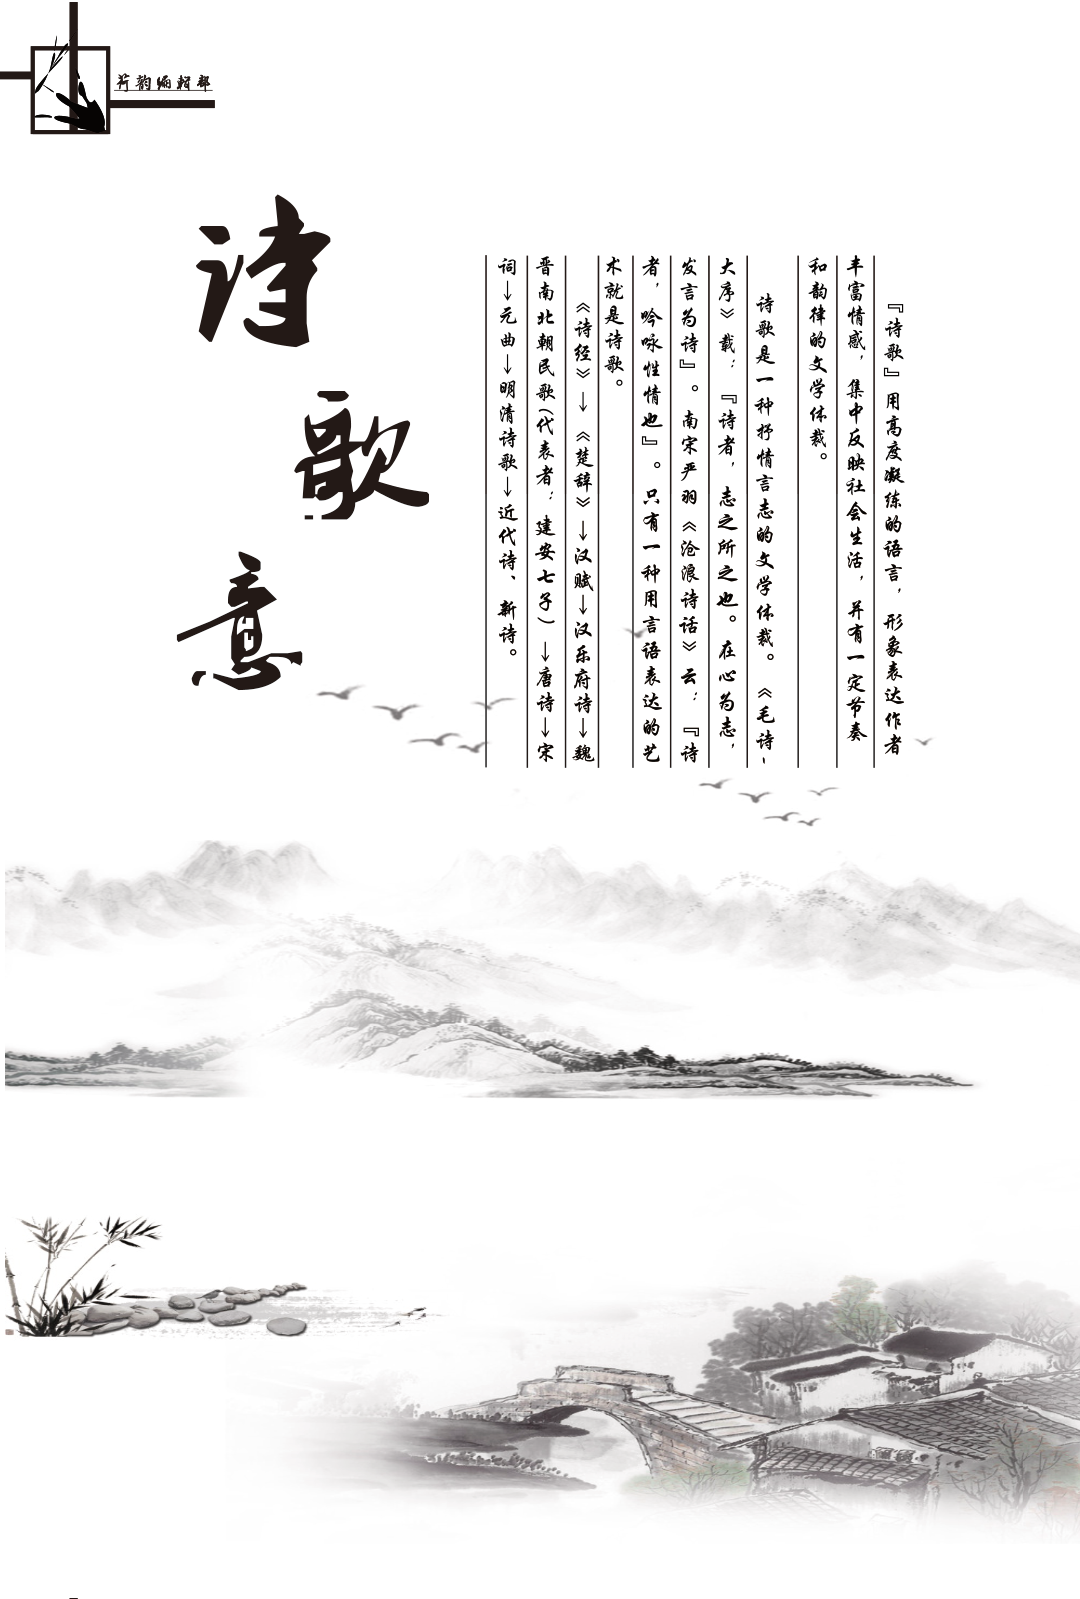 荷韵编辑部
诗
歌
意
『诗歌』用高度凝练的语言，形象表达作者
丰富情感，集中反映社会生活，并有一定节奏
和韵律的文学体裁。
诗歌是一种抒情言志的文学体裁。《毛诗-
大序》载：『诗者，志之所之也。在心为志，
发言为诗』。南宋严羽《沧浪诗话》云：『诗
者，吟咏性情也』。只有一种用言语表达的艺
术就是诗歌。
《诗经》→《楚辞》→汉赋→汉乐府诗→魏
晋南北朝民歌(代表者：建安七子)→唐诗→宋
词→元曲→明清诗歌→近代诗、新诗。